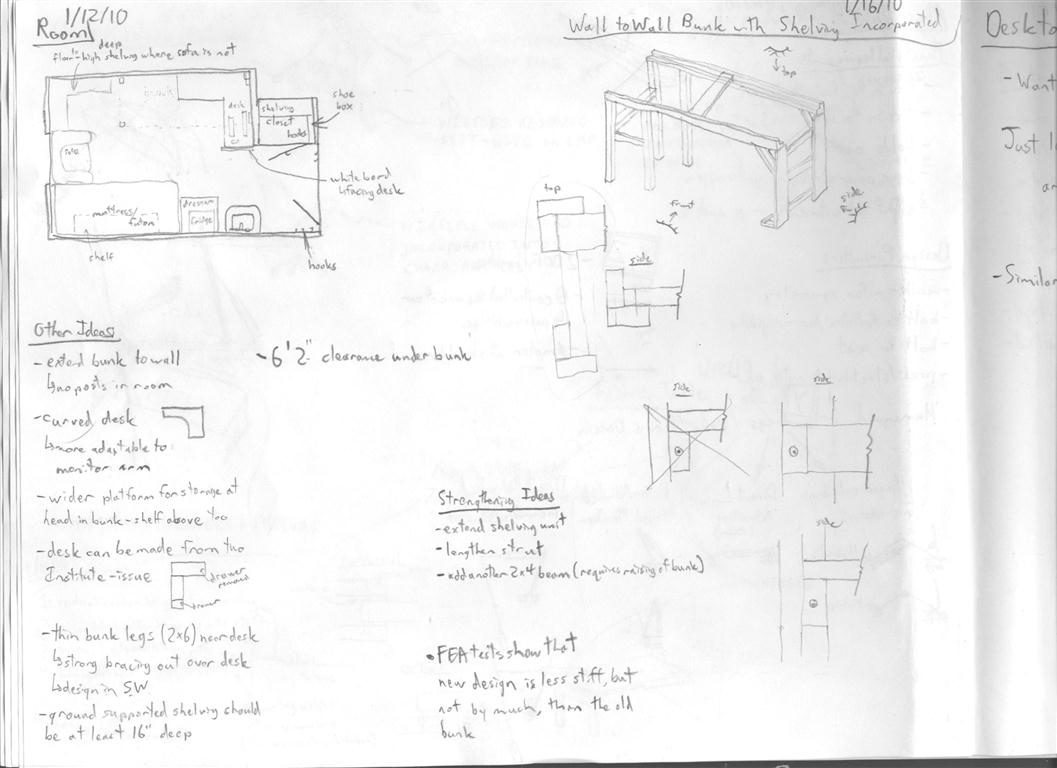 1/12/10
Room
deep
floor-high shelving where sofa is not
bunk
desk
shelving
closet
hooks
shoe
box
white bord
↳facing desk
mattress/
futon
dresser
fridge
shelf
hooks
Other Ideas
-extend bunk to wall
↳no posts in room
-curved desk
↳more adaptable to
monitor arm
-wider platform for storage at
head in bunk-shelf above too
-desk can be made from two
Institute-issue
drawer
removed
drawer
-thin bunk legs (2x6) near desk
↳strong bracing out over desk
↳design in SW
-ground supported shelving should
be at least 16" deep
-6'2" clearance under bunk
1/16/10
Wall to Wall Bunk with Shelving Incorporated
top
front
side
right
top
side
side
side
side
Strengthening Ideas
-extend shelving unit
-lengthen strut
-add another 2x4 beam (requires raising of bunk)
•FEA tests show that
new design is less stiff, but
not by much, than the old
bunk
Deskto
-Want
Just l
-Similar